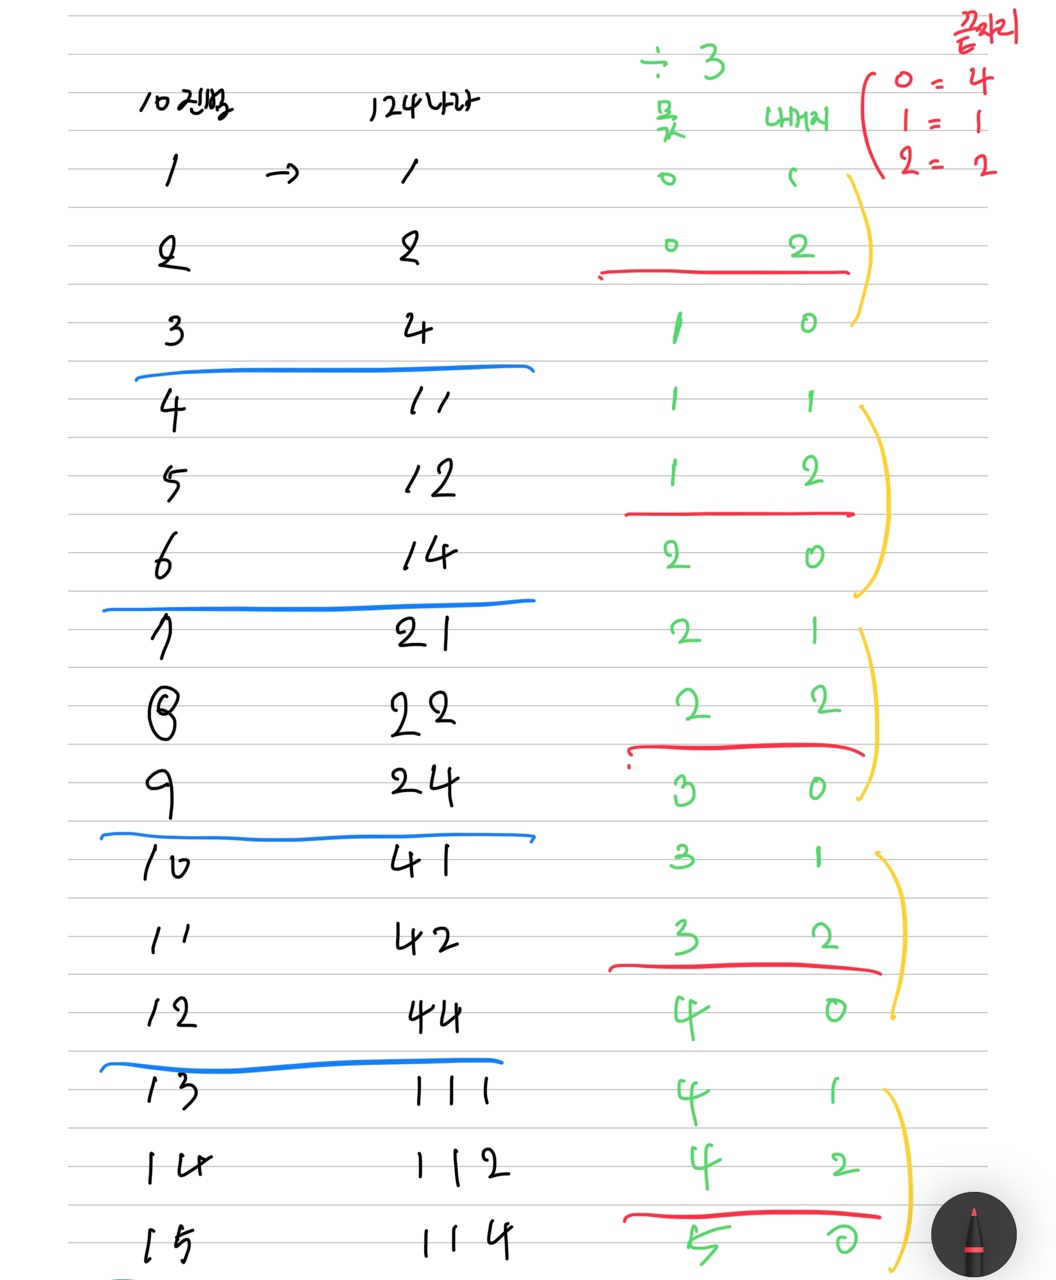 끝자리
÷ 3
0 = 4
10진법 124나라 몫 나머지 1 = 1
2 = 2
1 → 1 0 1
2 2 0 2
3 4 1 0
4 11 1 1
5 12 1 2
6 14 2 0
7 21 2 1
8 22 2 2
9 24 3 0
10 41 3 1
11 42 3 2
12 44 4 0
13 111 4 1
14 112 4 2
15 114 5 0